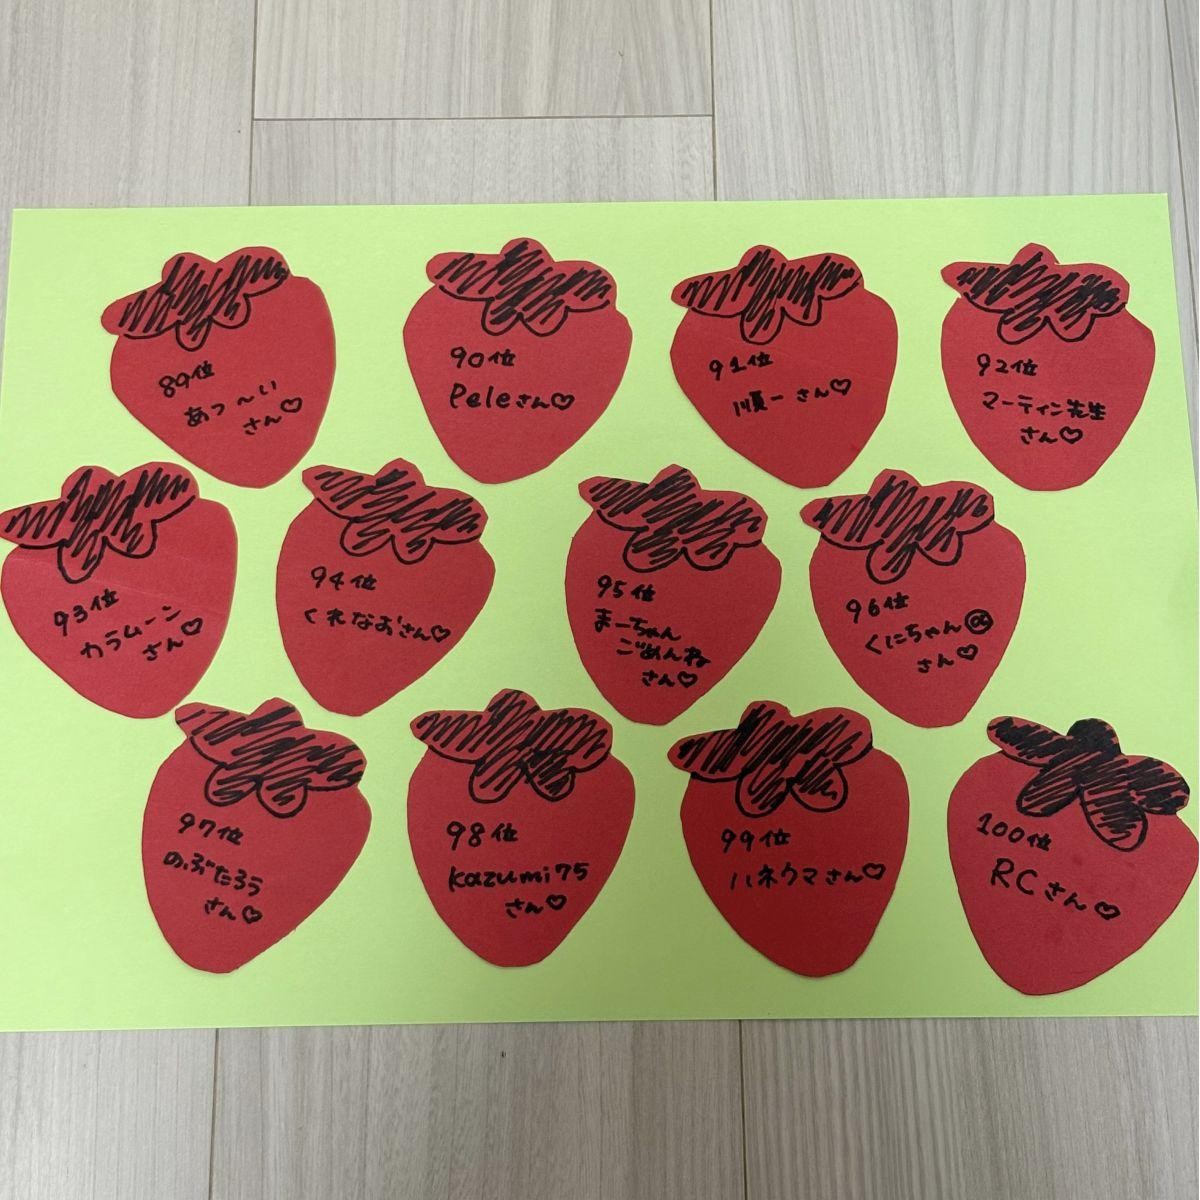 89位
あつ~い
さん♡
90位
Peleさん♡
91位
順一さん♡
92位
マーティン先生
さん♡
93位
カラムーン
さん♡
94位
くれなおさん♡
95位
まーちゃん
ごめんね
さん♡
96位
くにちゃん
さん♡
97位
のぶたろう
さん♡
98位
kazumi75
さん♡
99位
ハネクマさん♡
100位
RCさん♡